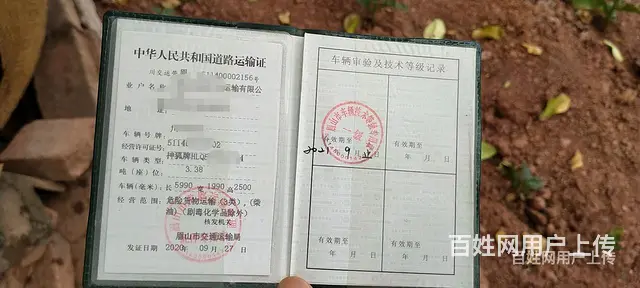 中华人民共和国道路运输证
川交运管眉
11400002156号
业户名称
运输有限公
地址
车辆号牌
经营许可证号
5114
02
车辆类型
神狐牌HLQ5
吨(座)位
3.38
车辆(毫米) 长5990 宽1990 高2500
经营范围 危险货物运输(3类),(柴
油)(剧毒化学品除外)
核发机关
眉山市交通运输局
发证日期 2020年09月27日
车辆审验及技术等级记录
有效期至
2021年9月
有效期至
年 月 日
有效期至
年 月 日
有效期至
年 月 日
百姓网用户上传
百姓网用户上传